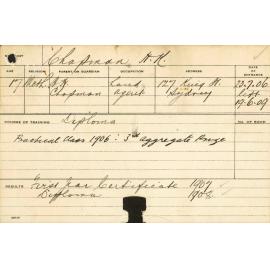 Chapman H.K.
AGE RELIGION PARENT OR GUARDIAN OCCUPATION ADDRESS DATE OF ENTRANCE
17 Meth. Chapman Land Agent 127 King St. Sydney 23.7.06
left 19.6.09
COURSE OF TRAINING Diploma No. OF ROOM
Practical Class 1906 : 3rd aggregate Prize
RESULTS First Year Certificate 1907
Diploma 1908